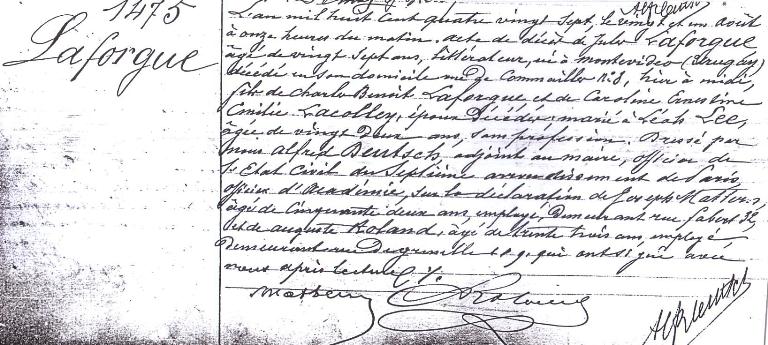 1475
Laforgue
L'an mil huit cent quatre vingt sept, le vingt et un août
à onze heures du matin, acte de décès de Jules Laforgue
âgé de vingt sept ans, littérateur, né à Montevideo (Uruguay)
décédé en son domicile rue de Commailles n°3, hier à midi,
fils de Charles Benoit Laforgue et de Caroline Ernestine
Emilie Lacolley, époux décédés; marié à Léah Lee,
âgée de vingt deux ans, sans profession. Dressé par
nous Alfred Bentsch, adjoint au maire, officier de
l'Etat Civil du Septième arrondissement de Paris
officier d'Académie, sur la déclaration de Joseph
âgé de Cinquante deux ans, employé, demeurant rue Fabert
et de auguste Roland, âgé de trente trois ans, employé,
Demeurant rue De grenelle qui ont signé avec
nous après lecture
Roland